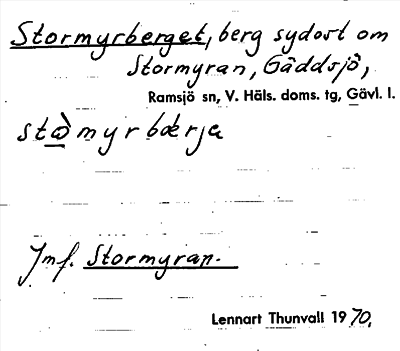 Stormyrberget, berg sydost om
Stormyran, Gäddsjö,
Ramsjö sn, V. Häls. doms. tg, Gävl. l.
stɑ̀myrbærja
Jmf. Stormyran.
Lennart Thunvall 1970,